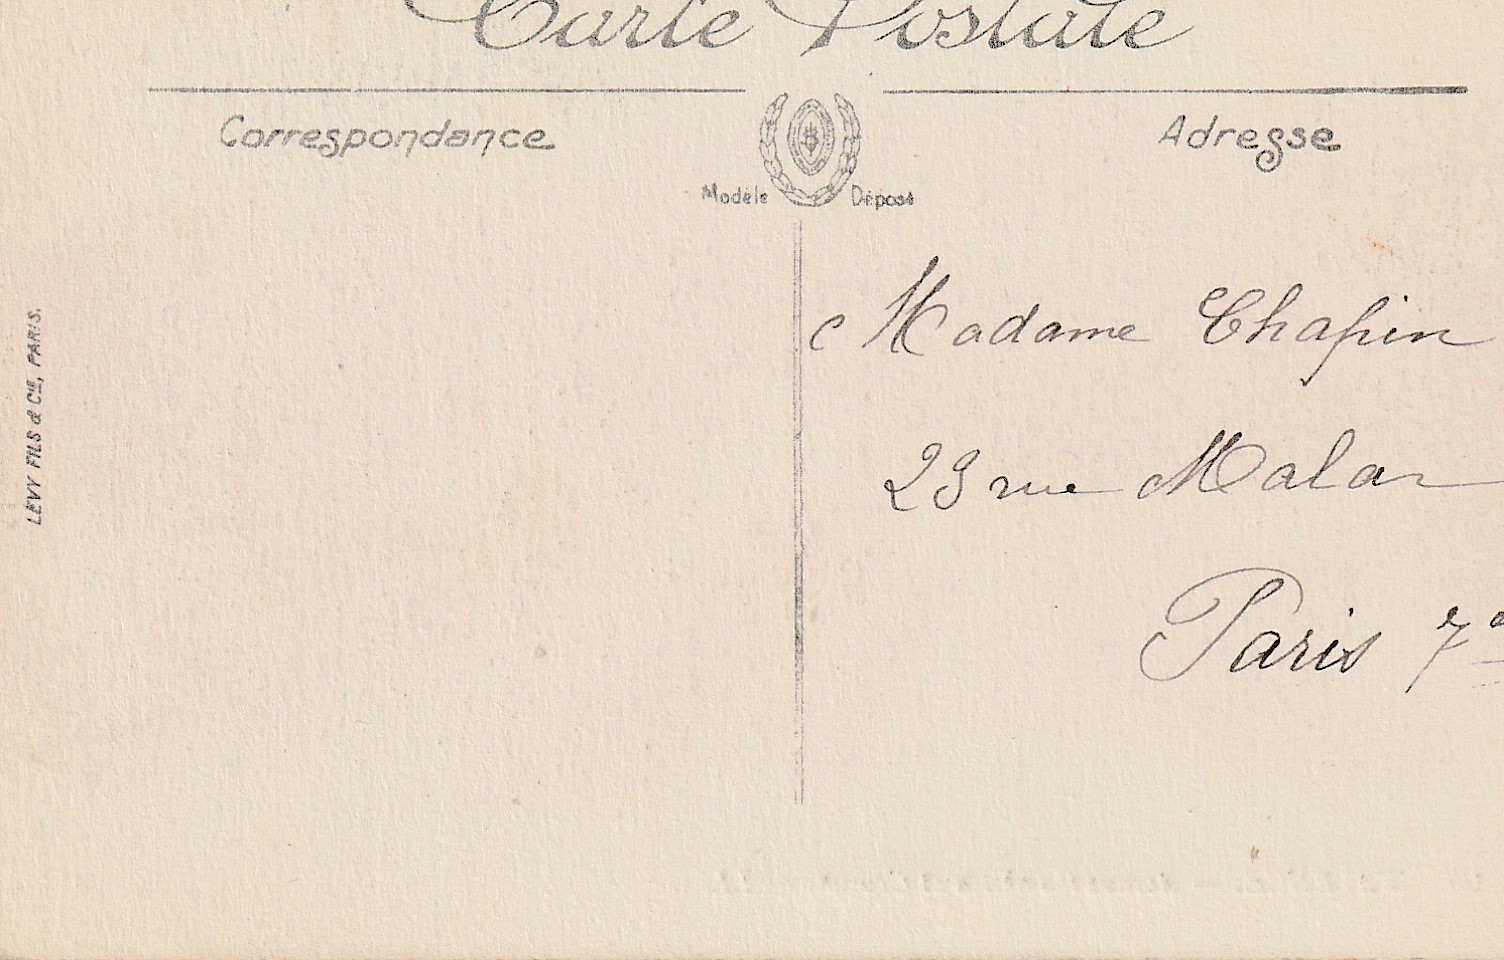 Carte Postale
Correspondance
Adresse
Modèle Déposé
LÉVY FILS & Cie, PARIS.
Madame Chapin
29 rue Malar
Paris 7e